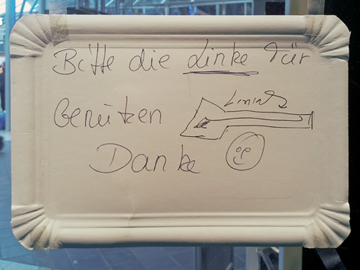 Bitte die Linke Tür
Benutzen
Danke